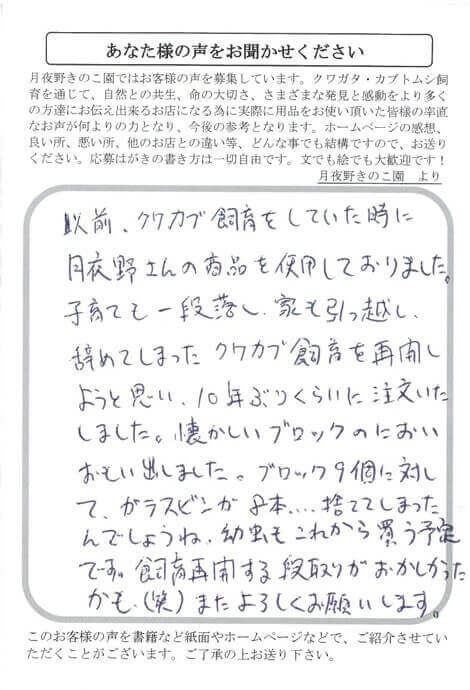 あなた様の声をお聞かせください
月夜野きのこ園ではお客様の声を募集しています。クワガタ・カブトムシ飼
育を通じて、自然との共生、命の大切さ、さまざまな発見と感動をより多く
の方達にお伝え出来るお店になる為に実際に用品をお使い頂いた皆様の率直
なお声が何よりの力となり、今後の参考となります。ホームページの感想、
良い所、悪い所、他のお店との違い等、どんな事でも結構ですので、お送り
ください。応募はがきの書き方は一切自由です。文でも絵でも大歓迎です！
月夜野きのこ園　より
以前、クワカブ飼育をしていた時に
月夜野さんの商品を使用しておりました。
子育ても一段落し、家も引っ越し、
辞めてしまったクワカブ飼育を再開し
ようと思い、10年ぶりくらいに注文いた
しました。懐かしいブロックのにおい
おもい出しました。ブロック9個に対し
て、ガラスビンが8本....捨ててしまった
んでしょうね、幼虫もこれから買う予定
です。飼育再開する段取りがおかしかった
かも、(笑)またよろしくお願いします。
このお客様の声を書籍など紙面やホームページなどで、ご紹介させてい
ただくことがございます。ご了承の上お送り下さい。